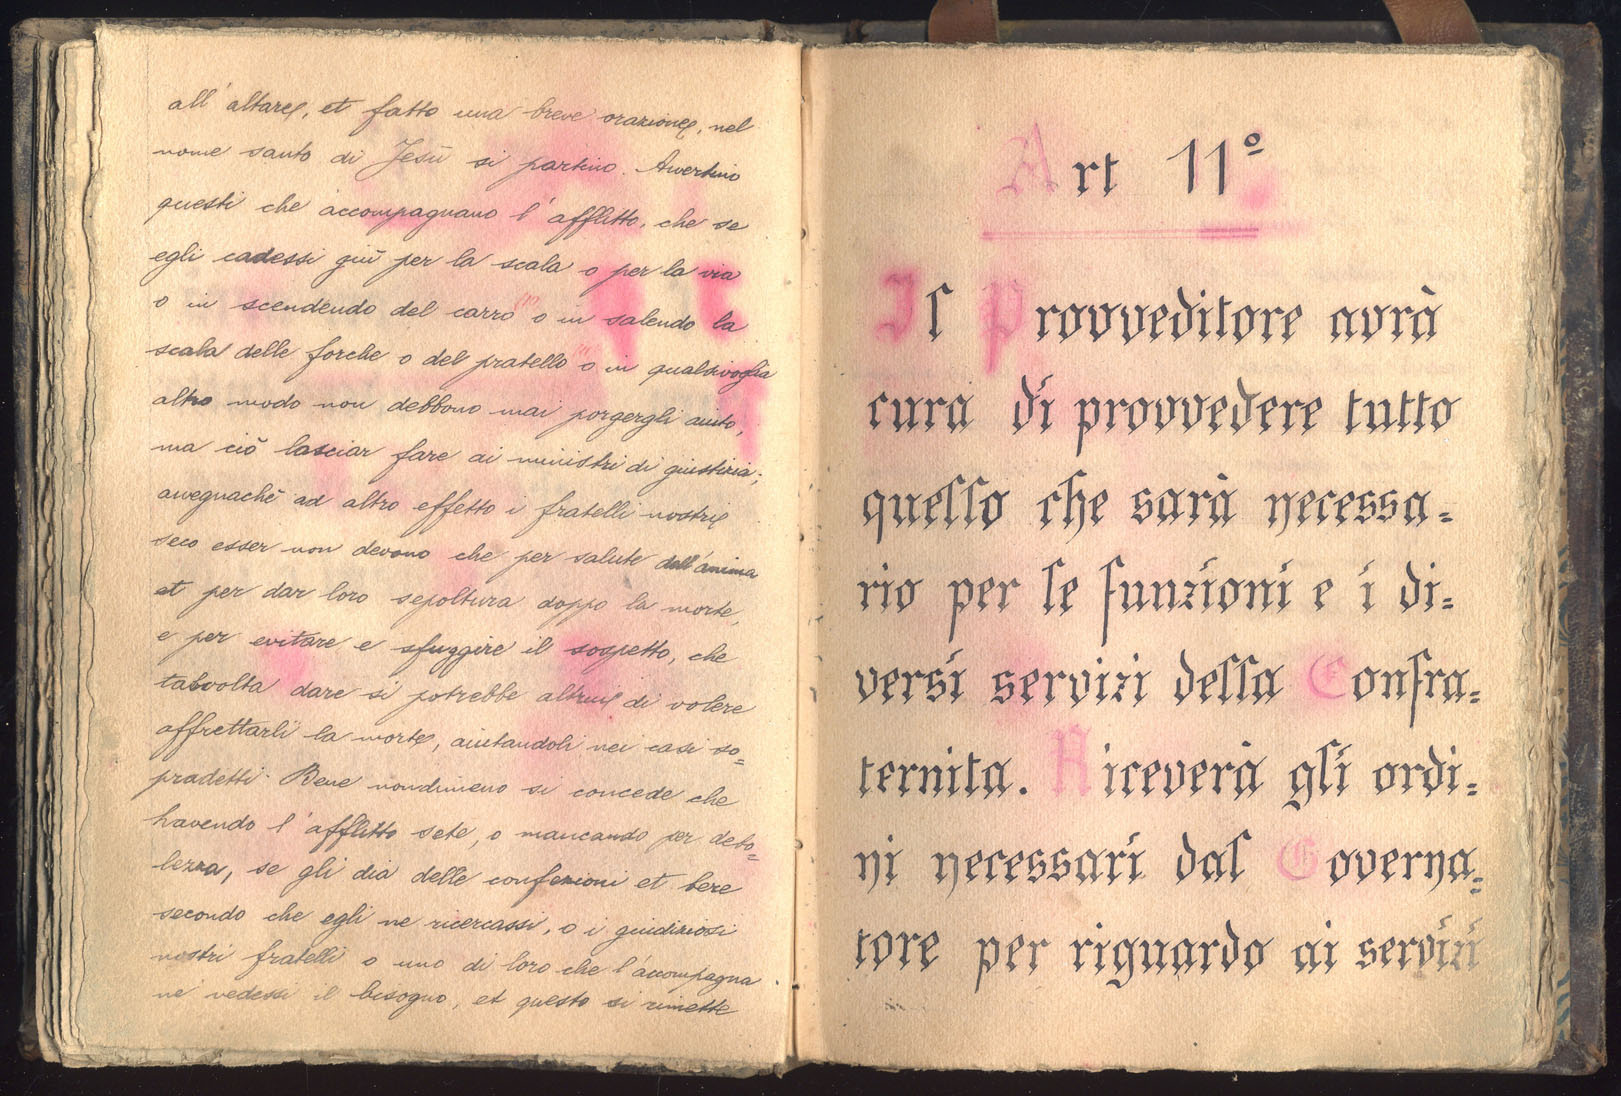 all'altare, et fatto una breve orazione, nel
nome santo di Jesù si partino. Avvertino
questi che accompagnano l'afflitto, che se
egli cadessi giù per la scala o per la via
o in scendendo del carro (1) o in salendo la
scala delle forche o del pratello (2) o in qualsivoglia
altro modo non debbono mai porgergli aiuto,
ma ciò lasciar fare ai ministri di giustizia;
avvegnachè ad altro effetto i fratelli nostri
seco esser non devono che per salute dell'anima
et per dar loro sepoltura doppo la morte,
e per evitare e sfuggire il sospetto, che
talvolta dare si potrebbe altrui di volere
affrettarli la morte, aiutandoli nei casi so=
pradetti. Bene nondimeno si concede che
havendo l'afflitto sete, o mancando per debo=
lezza, se gli dia delle confezioni et bere
secondo che egli ne ricercassi, o i giudiziosi
nostri fratelli o uno di loro che l'accompagna
ne vedessi il bisogno, et questo si rimette
Art 11º
Il Provveditore avrà
cura di provvedere tutto
quello che sarà necessa=
rio per le funzioni e i di=
versi servizi della Confra=
ternita. Riceverà gli ordi=
ni necessari dal Governa=
tore per riguardo ai servizi